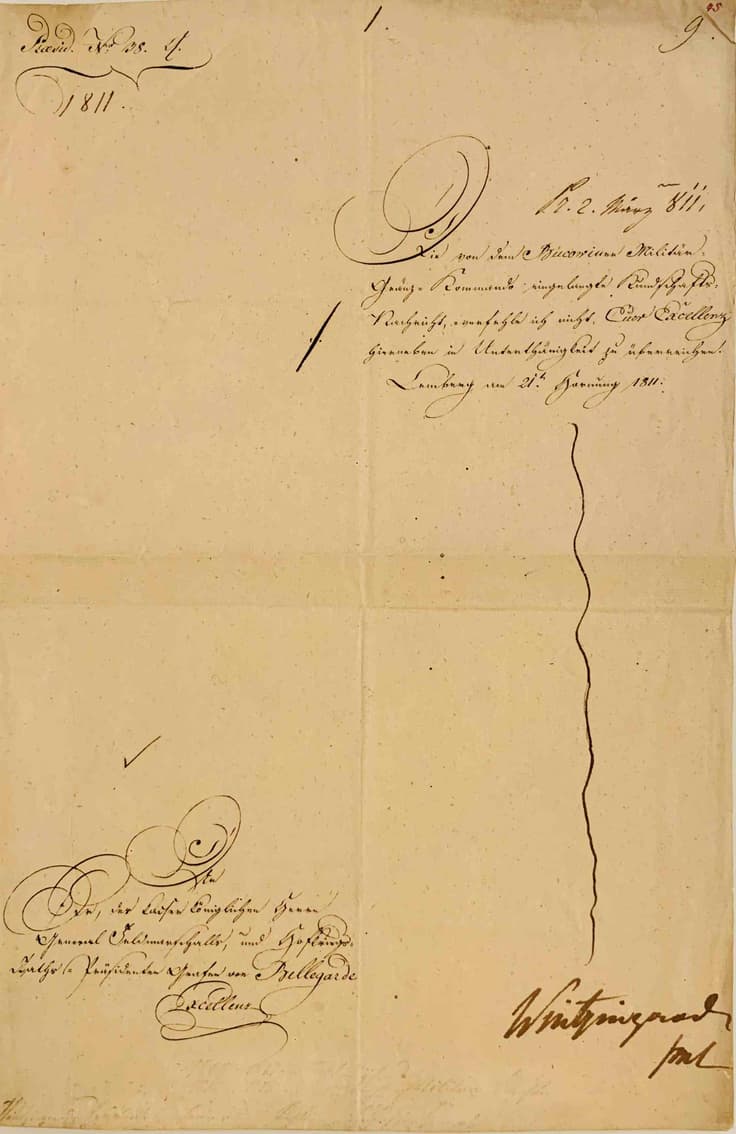 Praesid. No 38.
1811.
1.
9.
95
Pr. 2. März 811.
Die von dem Bucowiner Militär-
Gränz-Kommando eingelangte Kundschafts-
Nachricht, verfehle ich nicht, Euer Excellenz
hierneben in Unterthänigkeit zu überreichen.
Lemberg am 21t. Hornung 1811.
An
des kaiser königlichen Herrn
General Feldmarschalls, und Hofkriegs-
Raths-Präsidenten Grafen von Bellegarde
Excellenz